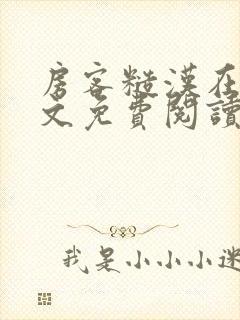 房客糙漢在
文免費閱讀
我是小小小迷